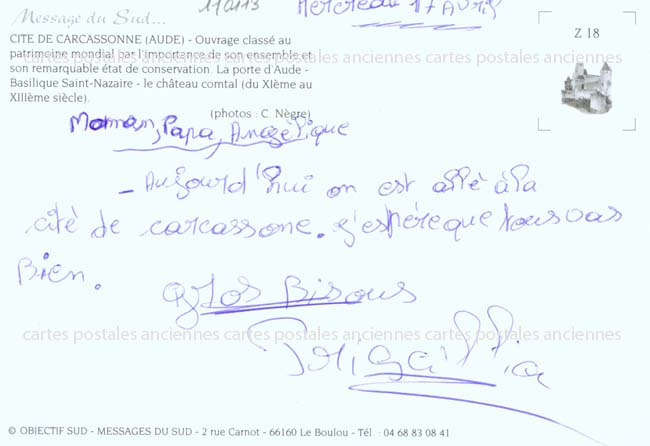 Message du Sud...
110113
Mercredi 17 Avril
CITE DE CARCASSONNE (AUDE) - Ouvrage classé au
patrimoine mondial par l'importance de son ensemble et
son remarquable état de conservation. La porte d'Aude -
Basilique Saint-Nazaire - le château comtal (du XIème au
XIIIème siècle).
(photos : C. Nègre)
Z 18
cartes postales anciennes cartes postales anciennes cartes postales anciennes
Maman, Papa, Angèlique
- Aujourd'hui on est allè à la
citè de carcassone. j'espére que tous vas
Bien.
gros Bisous
cartes postales anciennes cartes postales anciennes cartes postales anciennes
© OBJECTIF SUD - MESSAGES DU SUD - 2 rue Carnot - 66160 Le Boulou - Tél. : 04 68 83 08 41